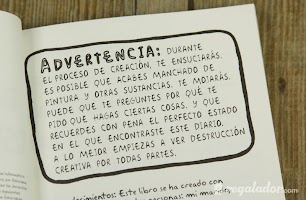 ADVERTENCIA: DURANTE
EL PROCESO DE CREACIÓN, TE ENSUCIARÁS.
ES POSIBLE QUE ACABES MANCHADO DE
PINTURA Y OTRAS SUSTANCIAS. TE MOJARÁS.
PUEDE QUE TE PREGUNTES POR QUÉ TE
PIDO QUE HAGAS CIERTAS COSAS. Y QUE
RECUERDES CON PENA EL PERFECTO ESTADO
EN EL QUE ENCONTRASTE ESTE DIARIO.
A LO MEJOR EMPIEZAS A VER DESTRUCCIÓN
CREATIVA POR TODAS PARTES.
decimientos: Este libro se ha creado con
personas: mi marido,
regalador.com